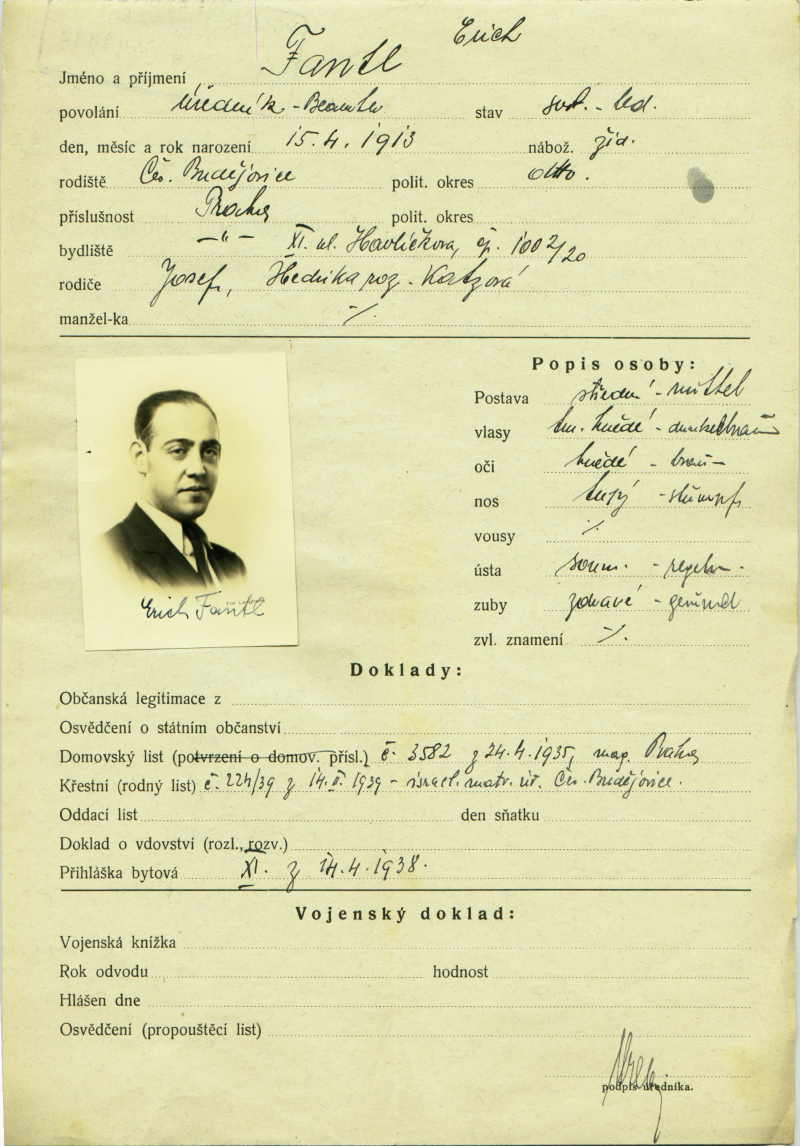 Erich
Jméno a příjmení Fantl
povolání úředník - Beamter stav svob. - led.
den, měsíc a rok narození 15.4.1913 nábož. žid.
rodiště Čes. Budějovice polit. okres dtto.
příslušnost Praha polit. okres
bydliště -"- XI. ul. Havlíčkova, čp. 1002/20
rodiče Josef, Hedvika roz. Katzová
manžel-ka ·/.
Popis osoby:
Postava střední - mittel
vlasy tm. hnědé - dunkelbraun
oči hnědé - braun
nos tupý - stumpf
vousy ·/.
ústa soum. - regelm.
zuby zdravé - gesund
zvl. znamení ·/.
Erich Fantl
Doklady:
Občanská legitimace z
Osvědčení o státním občanství
Domovský list (potvrzení o domov. přísl.) č. 3582 z 24.4.1935, mag. Praha
Křestní (rodný list) č. 224/39 z 14.II.1939 - israel. matr. úř. Čes. Budějovice.
Oddací list den sňatku
Doklad o vdovství (rozl., rozv.)
Přihláška bytová XI. z 14.4.1938.
Vojenský doklad:
Vojenská knížka
Rok odvodu hodnost
Hlášen dne
Osvědčení (propouštěcí list)
podpis úředníka.